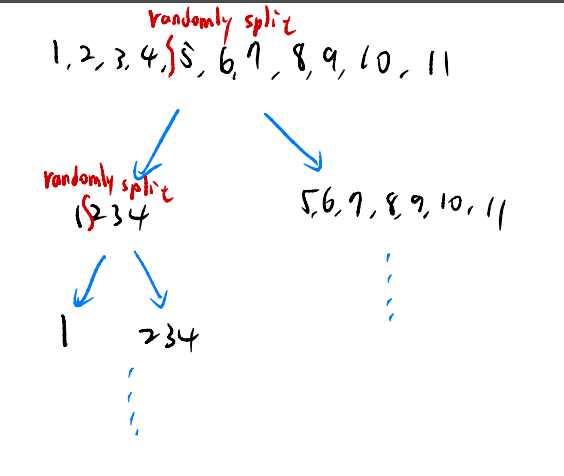 randomly split
1, 2, 3, 4, 5, 6, 7, 8, 9, 10, 11
randomly split
1 2 3 4
5, 6, 7, 8, 9, 10, 11
1
2 3 4